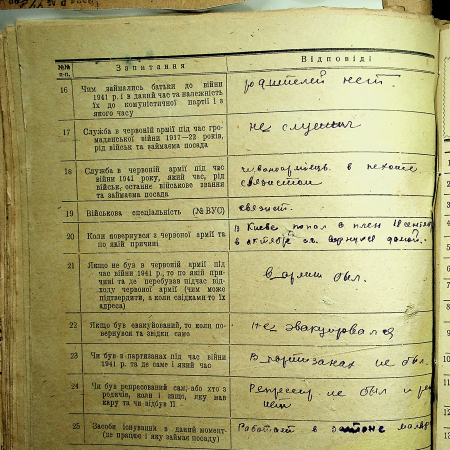 №№
п-п.
Запитання
Відповіді
16 Чим займались батьки до війни
1941 р. і в даний час та належність
їх до комуністичної партії і в
якого часу
родителей нет.
17 Служба в червоній армії під час гро-
мадянської війни 1917—22 років,
рід військ та займаєма посада
не служил
18 Служба в червоній армії під час
війни 1941 року, який час, рід
військ, останнє військове звання
та займаєма посада
в пехоте
связистом
19 Військова спеціяльність (№ ВУС)
связист.
20 Коли повернувся з червоної армії та
по якій причині
В Киеве попал в плен 18
в октябре вернулся домой.
21 Якщо не був в червоній армії під
час війни 1941 р., то по якій при-
чині та де перебував підчас від-
ходу червоної армії (чим може
підтвердити, а коли свідками то їх
адреса)
В армии был.
22 Якщо був евакуйований, то коли по-
вернувся та звідки само
Не эвакуировался
23 Чи був в партизанах під час війни
1941 р. та де саме і який час
В партизанах не был.
24 Чи був репресований сам, або хто з
родичів, коли і защо, яку мав
кару та чи відбув її
Репрессир не был и
нет
25 Засоби існування в даний момент
(де працює і яку займає посаду)
Работает в затоне